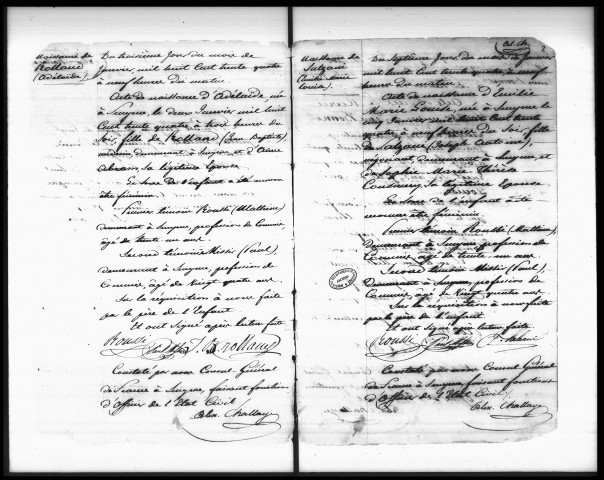 Naissance de
Rolland
(Adélaïde)
Du troisième Jour du mois de
Janvier mil huit Cent trente quatre
à neuf heures du matin
Acte de naissance d'Adélaïde né
à Smyrne, le deux Janvier mil huit
Cent trente quatre, à trois heures du
Soir, fille de Rolland (Jean Baptiste)
demeurant à Smyrne, et d'Anne
sa légitime Epouse
Le Sexe de l'enfant a été reconnu
être féminin
Premier témoin Roussi (Mathieu)
demeurant à Smyrne profession de Commis,
âgé de trente un ans
Second témoin Missir (Paul),
demeurant à Smyrne, profession de
Commis, âgé de Vingt quatre ans
Sur la réquisition à nous faite
par le père de l'Enfant
Et ont Signé après lecture faite
Roussi Rolland
Constaté par nous Consul Général
de France à Smyrne, faisant fonctions
d'Officier de l'Etat Civil
Challaye
Naissance de
Du Septième Jour du mois de Janvier
mil huit Cent trente quatre, à neuf
heures du matin
Acte de naissance d'Emilie
Marie née à Smyrne le
Janvier mil huit Cent trente
quatre, à neuf heures du Soir, fille
de (Joseph Antoine),
négociant, demeurant à Smyrne, et
de Sophie Marie Thérèse
Sa légitime Epouse
Le Sexe de l'enfant a été
reconnu être féminin
Premier témoin Roussi (Mathieu),
Demeurant à Smyrne, profession de
Commis, âgé de trente un ans
Second témoin Missir (Paul),
Demeurant à Smyrne, profession de
Commis, âgé de Vingt quatre ans
Sur la réquisition à nous faite
par le père de l'enfant
Et ont Signé après lecture faite
Roussi
Constaté par nous Consul Général
de France à Smyrne faisant fonctions
d'Officier de l'Etat Civil
Challaye